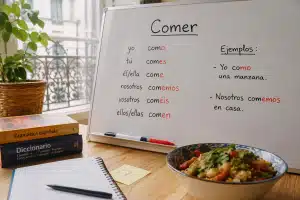 Comer
yo como
tu comes
él/ella come
nosotros comemos
vosotros coméis
ellos/ellas comen
Ejemplos:
- Yo como
una manzana.
- Nosotros comemos
en casa.
Diccionario